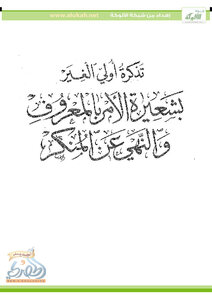 إهداء من شبكة الألوكة
www.alukah.net
الألوكة
تذكرة أولي الغير
بشعيرة الأمر بالمعروف
والنهي عن المنكر